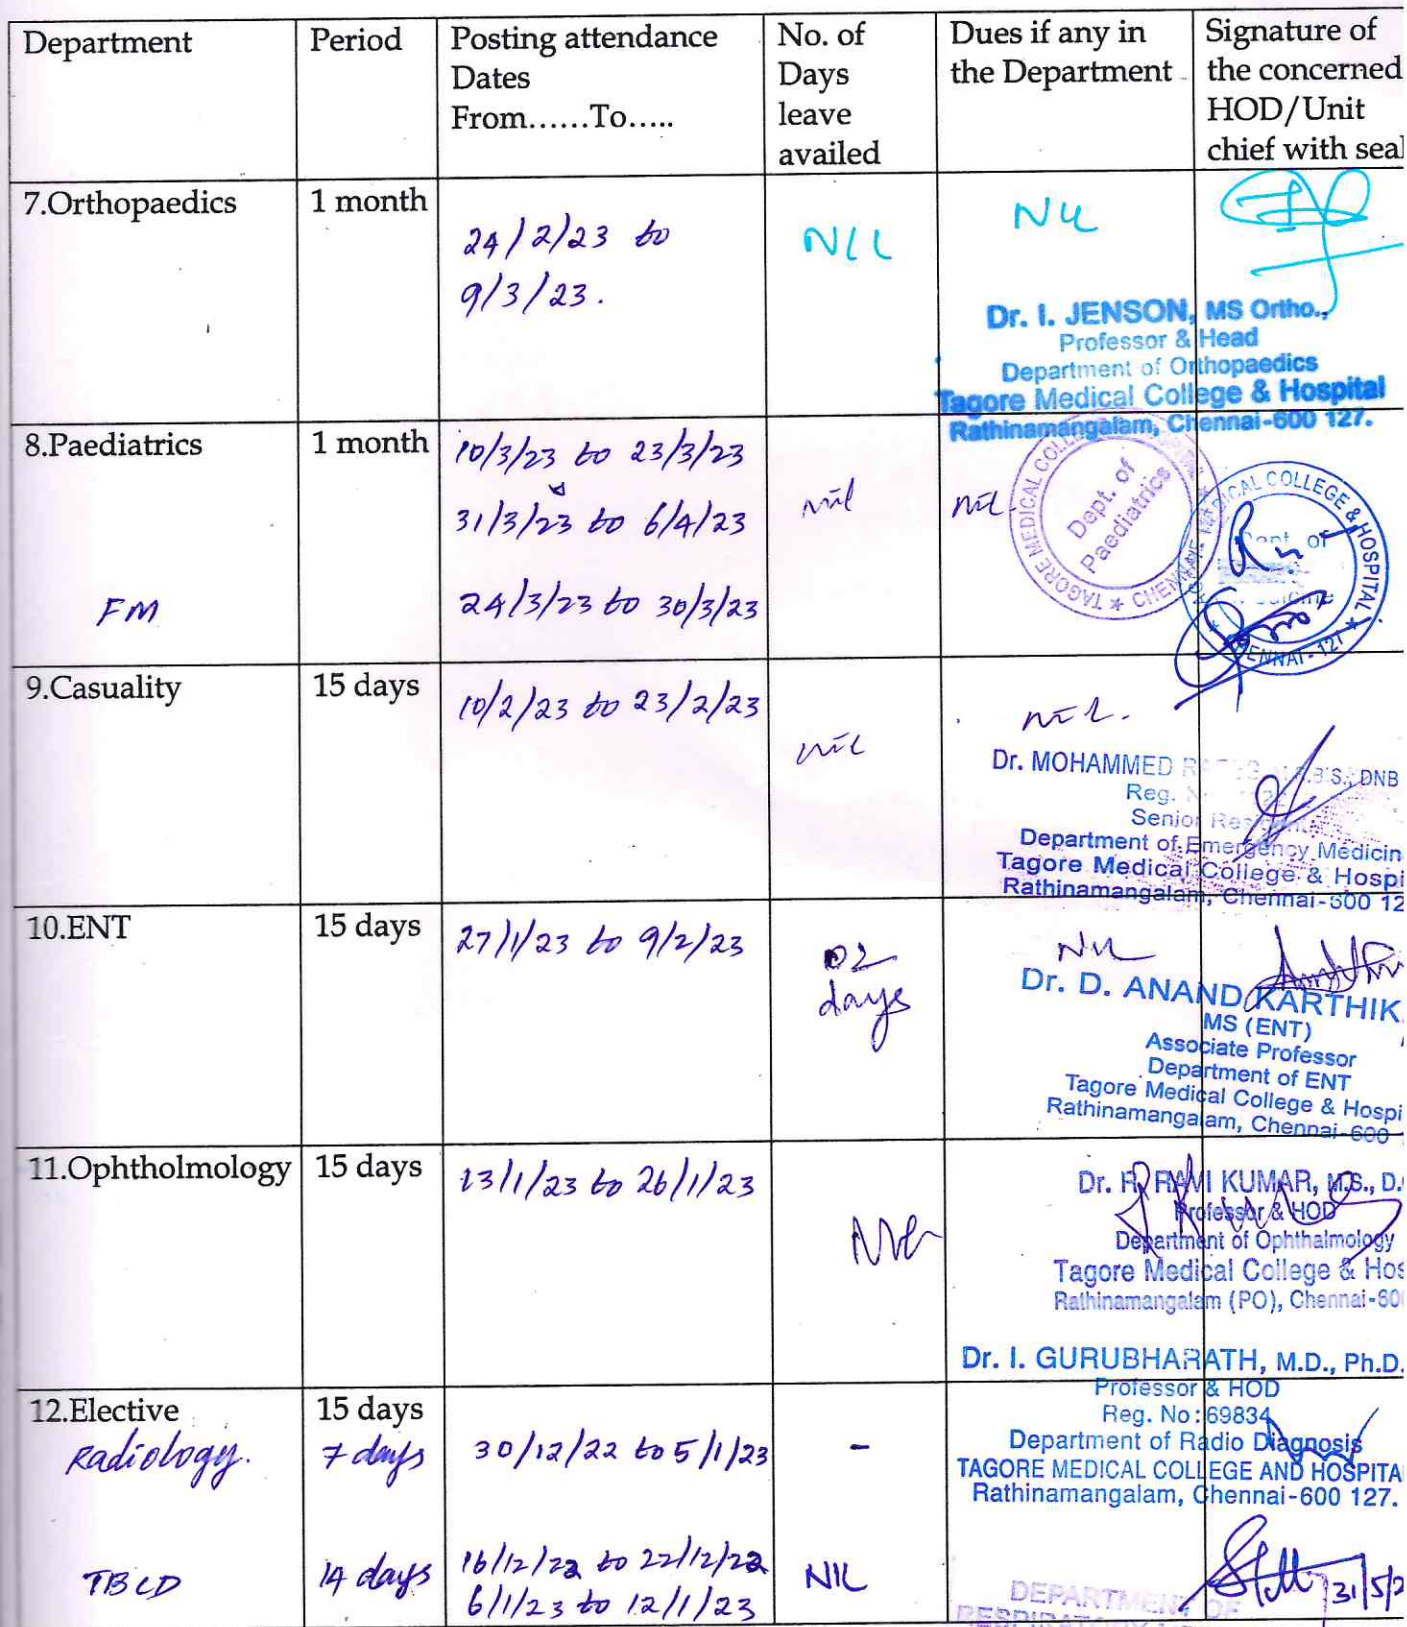 Department
Period
Posting attendance
Dates
From......To.....
No. of
Days
leave
availed
Dues if any in
the Department
Signature of
the concerned
HOD/Unit
chief with seal
7.Orthopaedics
1 month
24/2/23 to
9/3/23.
NIL
NIL
Dr. I. JENSON, MS Ortho.,
Professor & Head
Department of Orthopaedics
Tagore Medical College & Hospital
Rathinamangalam, Chennai-600 127.
8.Paediatrics
1 month
10/3/23 to 23/3/23
31/3/23 to 6/4/23
nil
nil.
TAGORE MEDICAL COLLEGE
CHENNAI
Dept. of
Paediatrics
FM
24/3/23 to 30/3/23
MEDICAL COLLEGE & HOSPITAL
Dept. of
CHENNAI - 127
9.Casuality
15 days
10/2/23 to 23/2/23
nil
nil.
Dr. MOHAMMED DNB
Reg.
Senior Resident
Department of Emergency Medicin
Tagore Medical College & Hospi
Rathinamangalam, Chennai-600 12
10.ENT
15 days
27/1/23 to 9/2/23
02
days
Nil
Dr. D. ANAND KARTHIK
MS (ENT)
Associate Professor
Department of ENT
Tagore Medical College & Hospi
Rathinamangalam, Chennai-600
11.Ophtholmology
15 days
13/1/23 to 26/1/23
Nil
Dr. R. RAVI KUMAR, M.S., D.
Professor & HOD
Department of Ophthalmology
Tagore Medical College & Hos
Rathinamangalam (PO), Chennai-60
12.Elective
15 days
Radiology.
7 days
30/12/22 to 5/1/23
-
Dr. I. GURUBHARATH, M.D., Ph.D.
Professor & HOD
Reg. No:69834
Department of Radio Diagnosis
TAGORE MEDICAL COLLEGE AND HOSPITA
Rathinamangalam, Chennai-600 127.
TBCD
14 days
16/12/22 to 22/12/22
6/1/23 to 12/1/23
NIL
31/5/2
DEPARTMENT OF